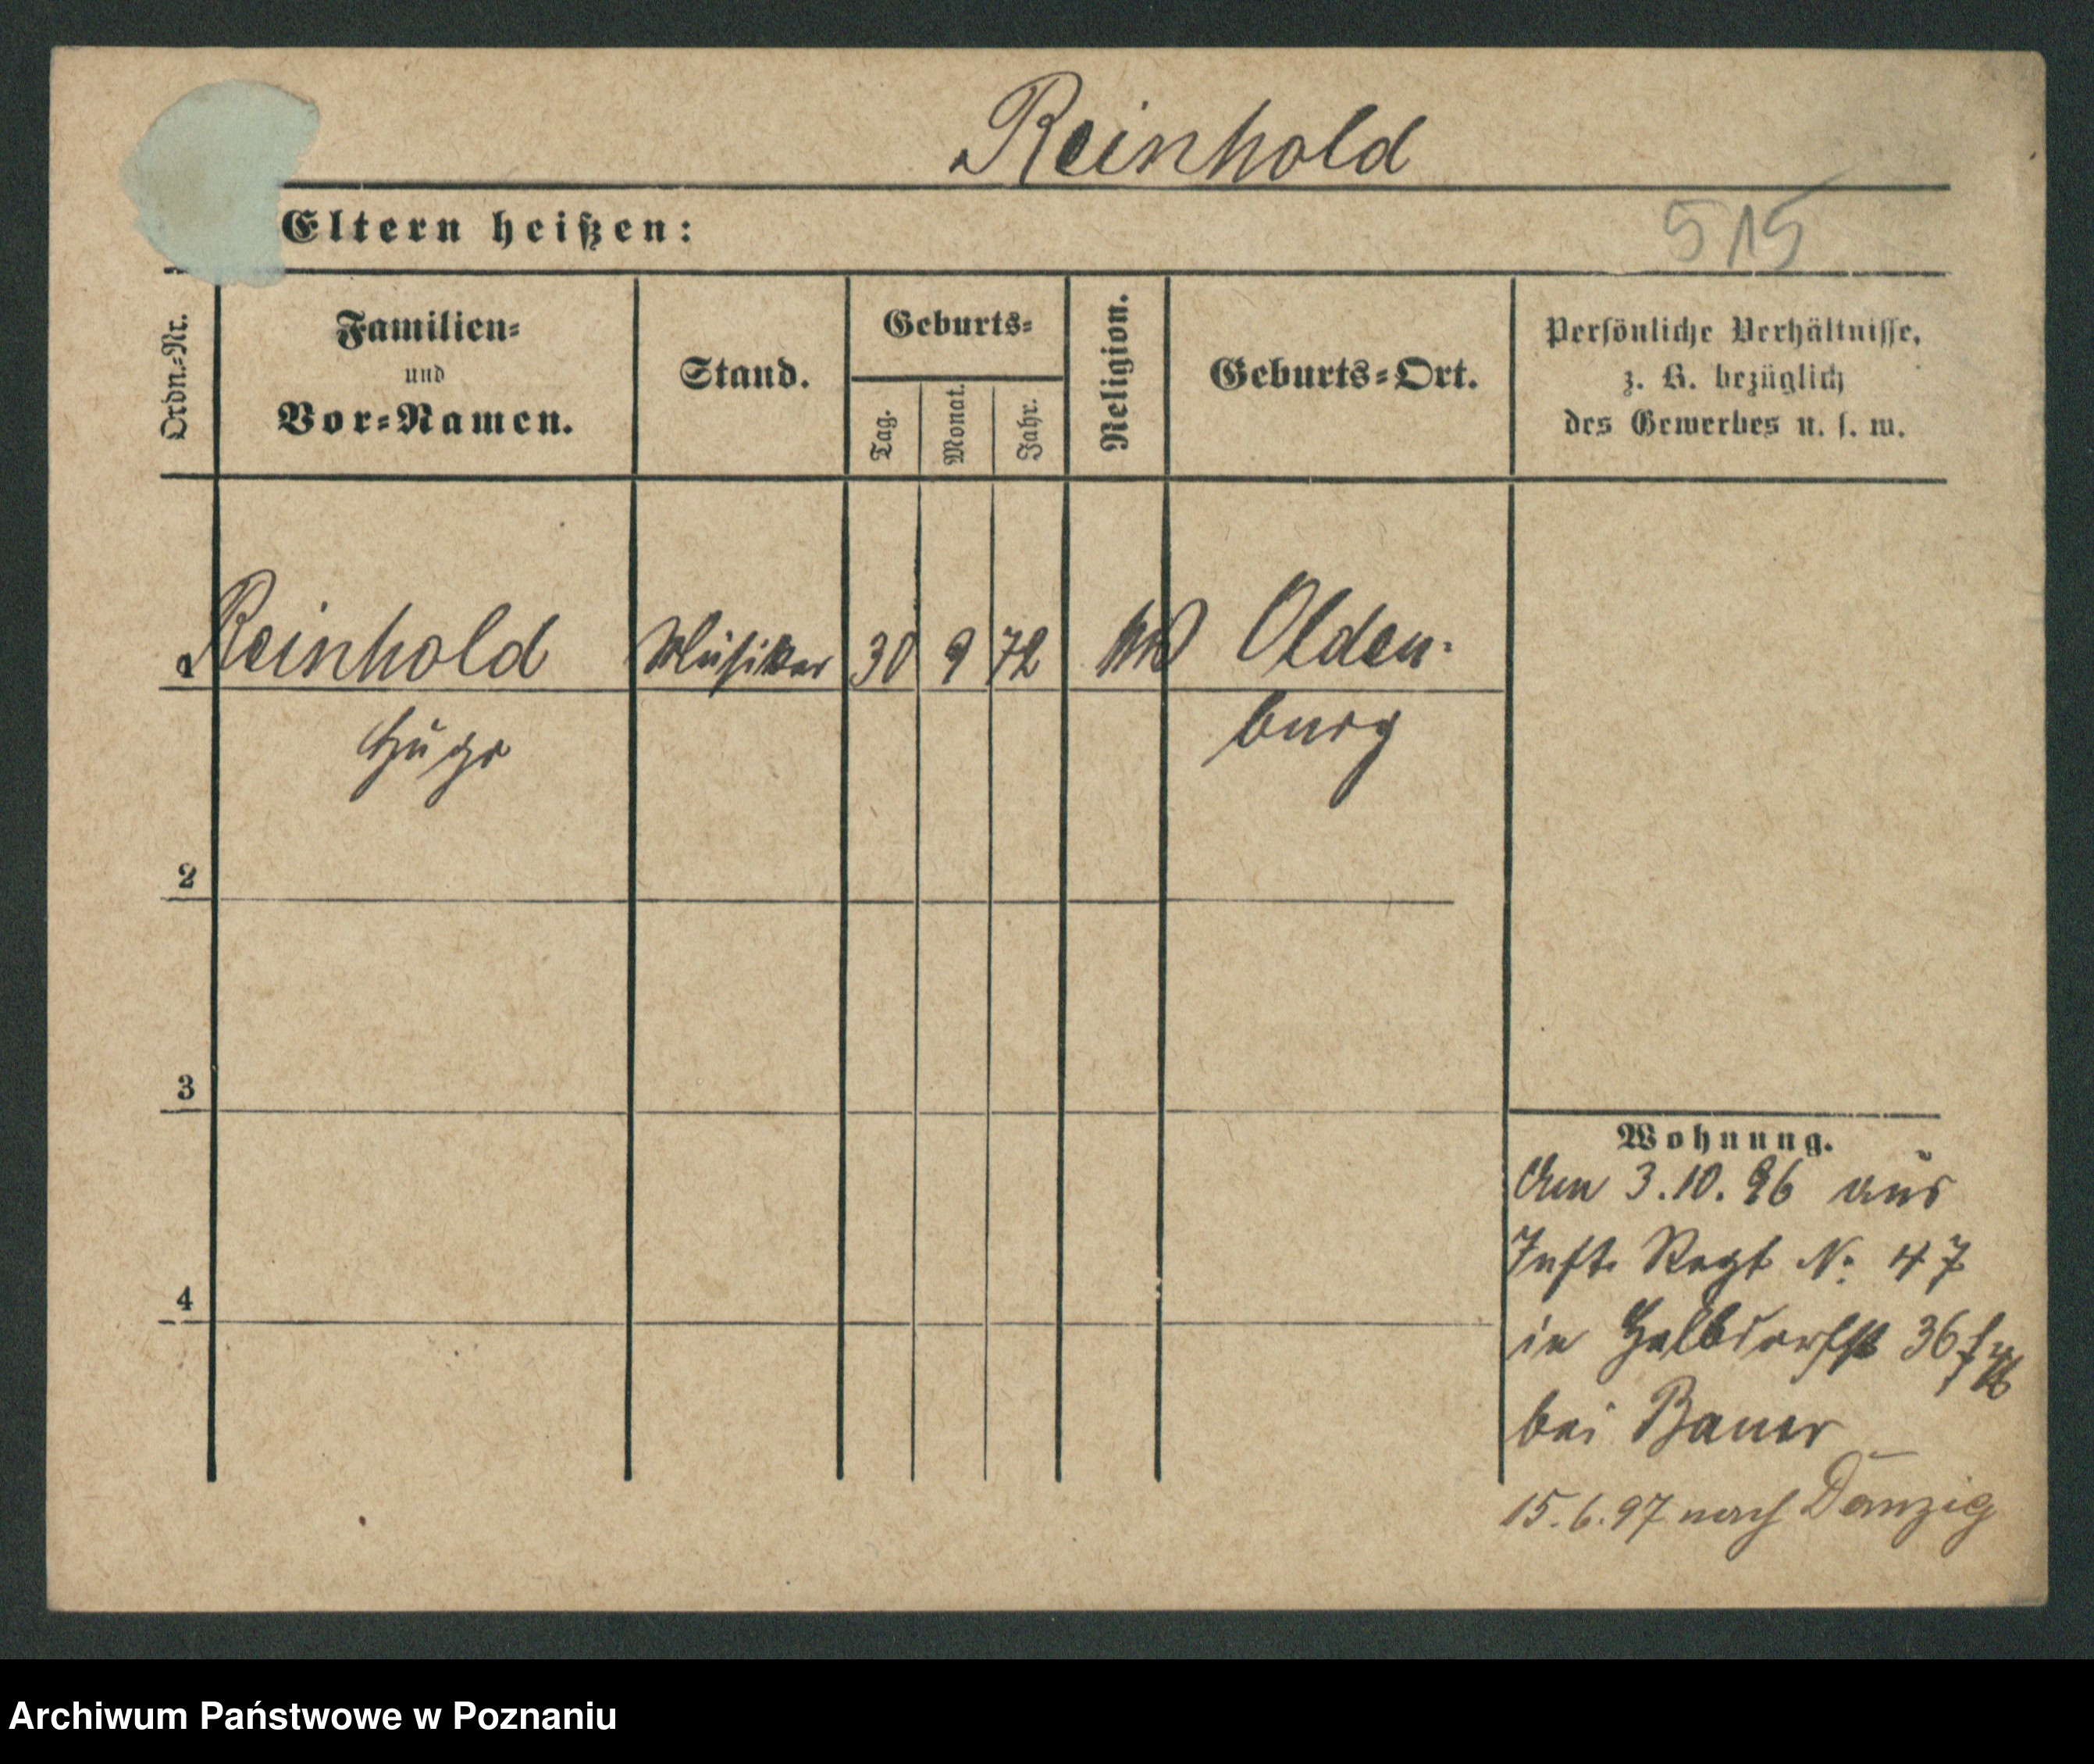 Reinhold
Eltern heißen:
515
Ordn.-Nr.
Familien-
und
Vor-Namen.
Stand.
Geburts-
Tag.
Monat.
Jahr.
Religion.
Geburts-Ort.
Persönliche Verhältnisse,
z. B. bezüglich
des Gewerbes u. s. w.
1 Reinhold Musiker 30 9 72 Olden-
Hugo burg
2
3
4
Wohnung.
Am 3.10.96 aus
Inft. Regt No 47
in Halbdorfst 36
bei Bauer
15.6.97 nach Danzig
Archiwum Państwowe w Poznaniu